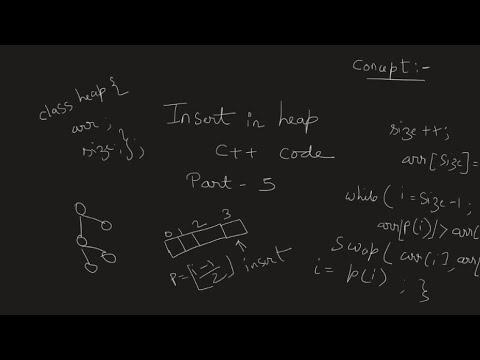 Concept :-
class heap {
arr ;
size ; } ;
Insert in heap
C++ code
Part - 5
size ++ ;
arr [ size ] =
while ( i = size - 1 ;
arr[p(i)] > arr(
swap ( arr(i) , arr(
i = p(i) ; }
0 1 2 3
P = [ i-1 / 2 ]
insert